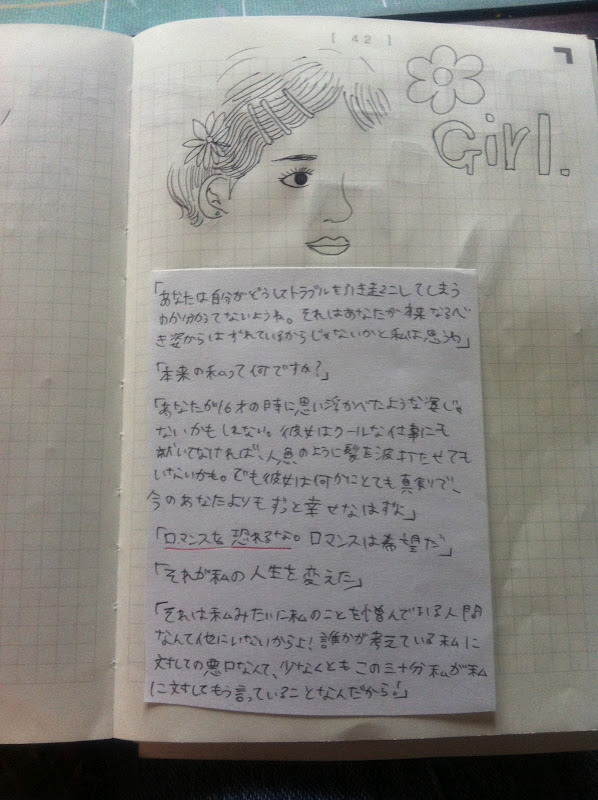 [ 42 ]
Girl.
「あなたは自分がどうしてトラブルを引き起こしてしまう
のか分かってないようね。それはあなたが本来なるべ
き姿からはずれているからじゃないかと私は思うわ」
「本来の私って何ですか?」
「あなたが16才の時に思い浮かべたような姿じゃ
ないかもしれない。彼女はクールな仕事にも
就いてなければ、人魚のように髪を波打たせても
いないかも。でも彼女は何かにとても真剣で、
今のあなたよりもずっと幸せなはずよ」
「ロマンスを恐れるな。ロマンスは希望だ」
「それが私の人生を変えた」
「それは私みたいに私のことを憎んでいる人間
なんて他にいないからよ!誰かが考えている私に
対しての悪口なんて、少なくともこの三十分私が私
に対してもう言っていることなんだから!」